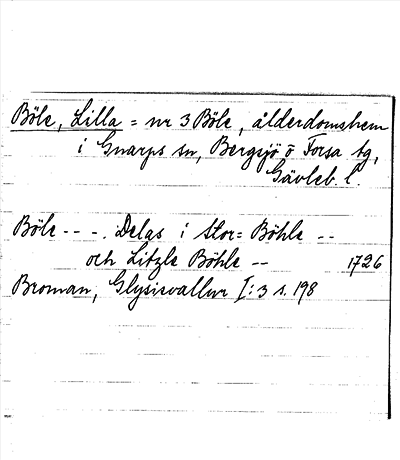 Böle, Lilla = nr 3 Böle, ålderdomshem
i Gnarps sn, Bergsjö o Forsa tg,
Gävleb. l.
Böle -- -. Delas i Stor= Böhle --
och Litzle Böhle -- 1726
Broman, Glysisvallur I:3 s. 198